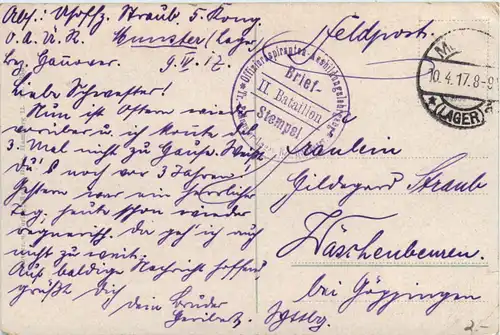 Abs: Uoffz. Straub, 5. Komp.
O. A. U. K. Munster (Lager)
Bez. Hannover. 9. IV. 17.
Feldpost.
10.4.17.8-9
(LAGER)
Brief-
II. Bataillon
Stempel
Liebe Schwester!
Nun ist Ostern wieder
vorüber u. ich konnte das
3. Mal nicht zu Hause. Weißt
du's noch vor 3 Jahren?
Gestern war ein herrlicher
Tag, heute schon wieder
regnerisch, da geh' ich auch
nicht zu weit.
Auf baldige Nachricht hoffend
grüßt Dich
dein Bruder
Heribert.
Fräulein
Hildegard Straub
Wäschenbeuren.
bei Göppingen
Wttbg.
2.-